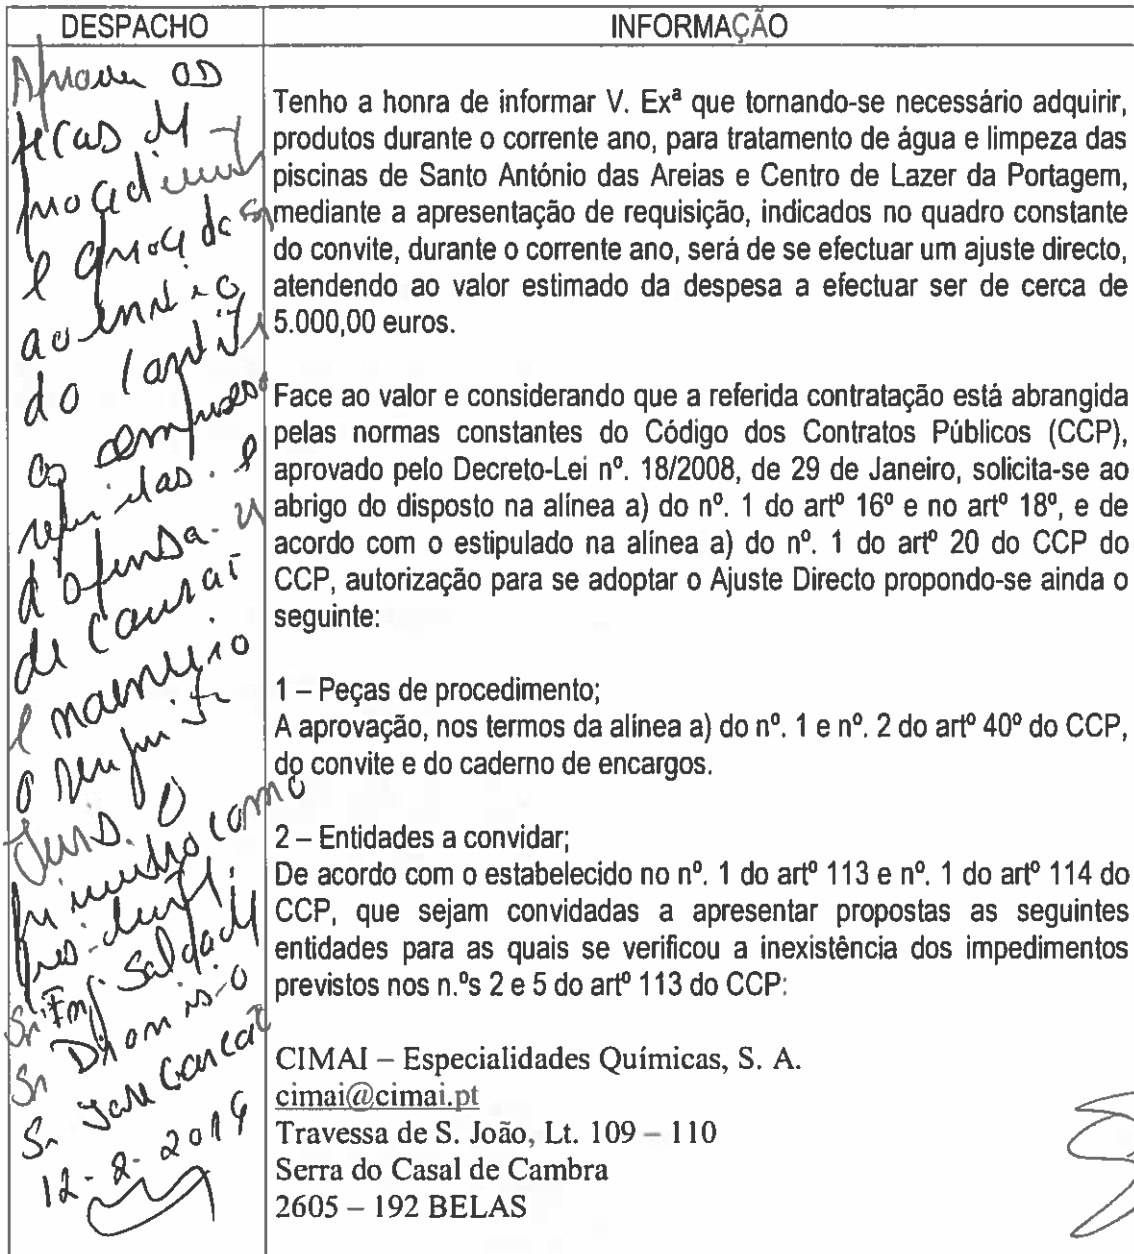 DESPACHO
Aprovar os
peças de
procedimento
e proceda-se
ao envio
do convite
as empresas
referidas. e
dispensa-se
de caução
e nomeio
o seguinte
Juri. O
primeiro como
presidente
Sr Engº Soldado
Sr Dionisio
Sr José Garção
12-2-2014
INFORMAÇÃO
Tenho a honra de informar V. Exª que tornando-se necessário adquirir,
produtos durante o corrente ano, para tratamento de água e limpeza das
piscinas de Santo António das Areias e Centro de Lazer da Portagem,
mediante a apresentação de requisição, indicados no quadro constante
do convite, durante o corrente ano, será de se efectuar um ajuste directo,
atendendo ao valor estimado da despesa a efectuar ser de cerca de
5.000,00 euros.
Face ao valor e considerando que a referida contratação está abrangida
pelas normas constantes do Código dos Contratos Públicos (CCP),
aprovado pelo Decreto-Lei nº. 18/2008, de 29 de Janeiro, solicita-se ao
abrigo do disposto na alínea a) do nº. 1 do artº 16º e no artº 18º, e de
acordo com o estipulado na alínea a) do nº. 1 do artº 20 do CCP do
CCP, autorização para se adoptar o Ajuste Directo propondo-se ainda o
seguinte:
1 – Peças de procedimento;
A aprovação, nos termos da alínea a) do nº. 1 e nº. 2 do artº 40º do CCP,
do convite e do caderno de encargos.
2 – Entidades a convidar;
De acordo com o estabelecido no nº. 1 do artº 113 e nº. 1 do artº 114 do
CCP, que sejam convidadas a apresentar propostas as seguintes
entidades para as quais se verificou a inexistência dos impedimentos
previstos nos n.ºs 2 e 5 do artº 113 do CCP:
CIMAI – Especialidades Químicas, S. A.
cimai@cimai.pt
Travessa de S. João, Lt. 109 – 110
Serra do Casal de Cambra
2605 – 192 BELAS